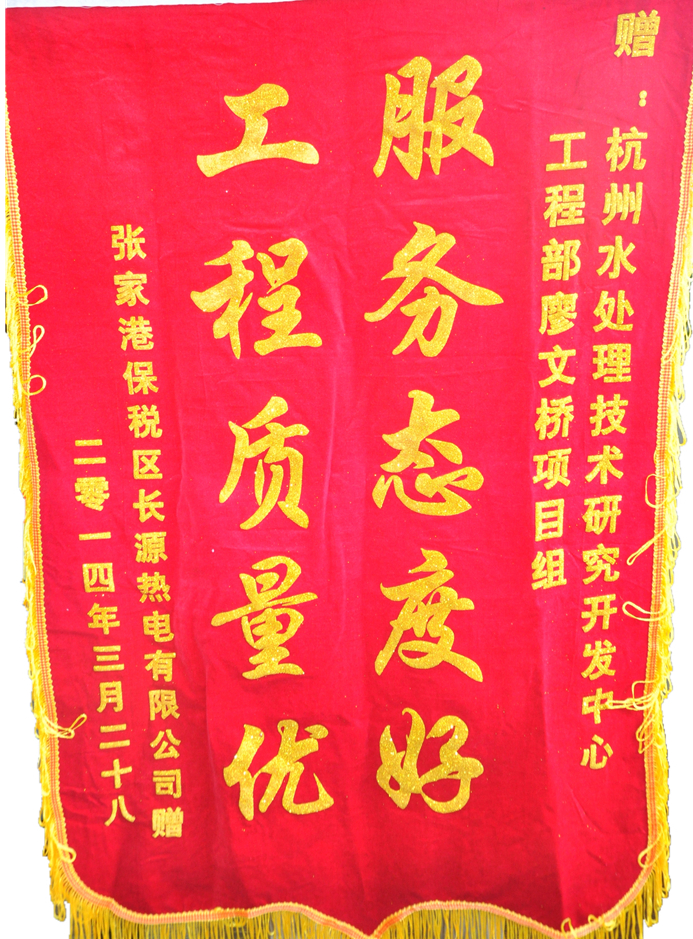 赠：杭州水处理技术研究开发中心
工程部廖文桥项目组
服务态度好
工程质量优
张家港保税区长源热电有限公司赠
二零一四年三月二十八